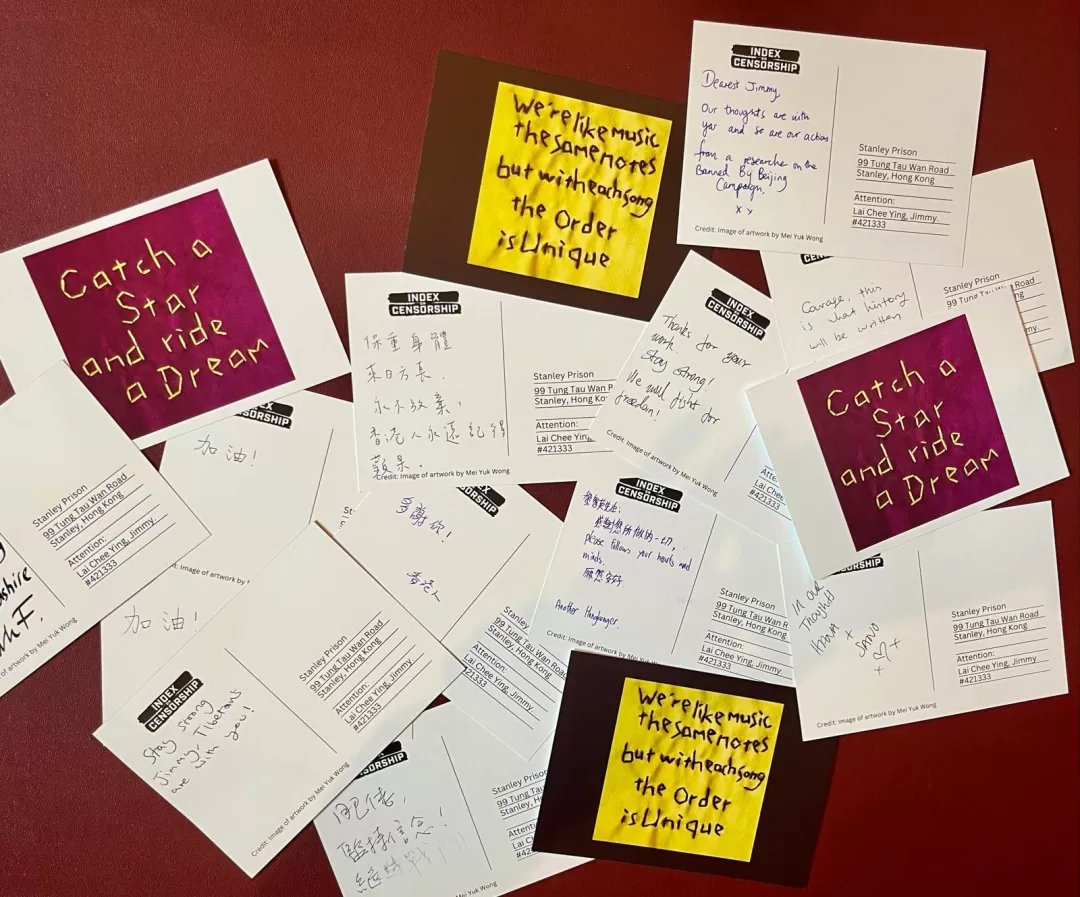 We're like music
the same notes
but with each song
the Order
is Unique
INDEX
ON
CENSORSHIP
Dearest Jimmy,
Our thoughts are with
you and so are our actions
from a researcher on the
Banned By Beijing
Campaign.
x x
Stanley Prison
99 Tung Tau Wan Road
Stanley, Hong Kong
Attention:
Lai Chee Ying, Jimmy.
#421333
Credit: Image of artwork by Mei Yuk Wong
Catch a
Star
and ride
a Dream
INDEX
ON
CENSORSHIP
保重身體
來日方長.
永不放棄,
香港人永遠記得
Stanley Prison
99 Tung Tau Wan
Stanley, Hong Ko
Attention:
Lai Chee Yin
#421333
Credit: Image of artwork by Mei Yuk Wong
INDEX
ON
CENSORSHIP
Thanks for your
work.
Stay strong!
We will fight for
freedom!
Credit: Image of artwork by Mei Yuk Wong
Courage, this
is what history
will be written
Stanley Prison
99 Tung
Road
Catch a
Star
and ride
a Dream
加油!
Stanley Prison
99 Tung Tau Wan Road
Stanley, Hong Kong
Attention:
Lai Chee Ying, Jimmy.
#421333
of artwork by Mei Yuk Wong
加油!
INDEX
ON
CENSORSHIP
Stay strong
Jimmy, Tibetans
are with you!
Stanley Prison
99 Tung Tau Wan Road
Stanley, Hong Kong
Attention:
Lai Chee Ying, Jimmy.
#421333
Credit: Image of artwork by Mei Yuk Wong
多謝你!
香港人
Stanley Prison
99 Tung Tau Wan
Stanley, Hong Kong
Attention:
Lai Chee Ying, Jimmy.
#421333
INDEX
ON
CENSORSHIP
感謝您所做的一切,
please follows your hearts and
minds.
願您安好
Another Hongkonger.
Stanley Prison
99 Tung Tau Wan R
Stanley, Hong Kong
Attention:
Lai Chee Ying, Jimmy.
#421333
In our
Thoughts
+
Stanley Prison
99 Tung Tau Wan Road
Stanley, Hong Kong
Attention:
Lai Chee Ying, Jimmy.
#421333
Credit: Image of artwork by Mei Yuk Wong
肥佬,
堅持信念!
繼續戰鬥
Stanley Prison
99 Tung Tau
Stanley, Ho
Attenti
Lai Ch
#42
Mei Yuk Wong
We're like music
the same notes
but with each song
the Order
is Unique